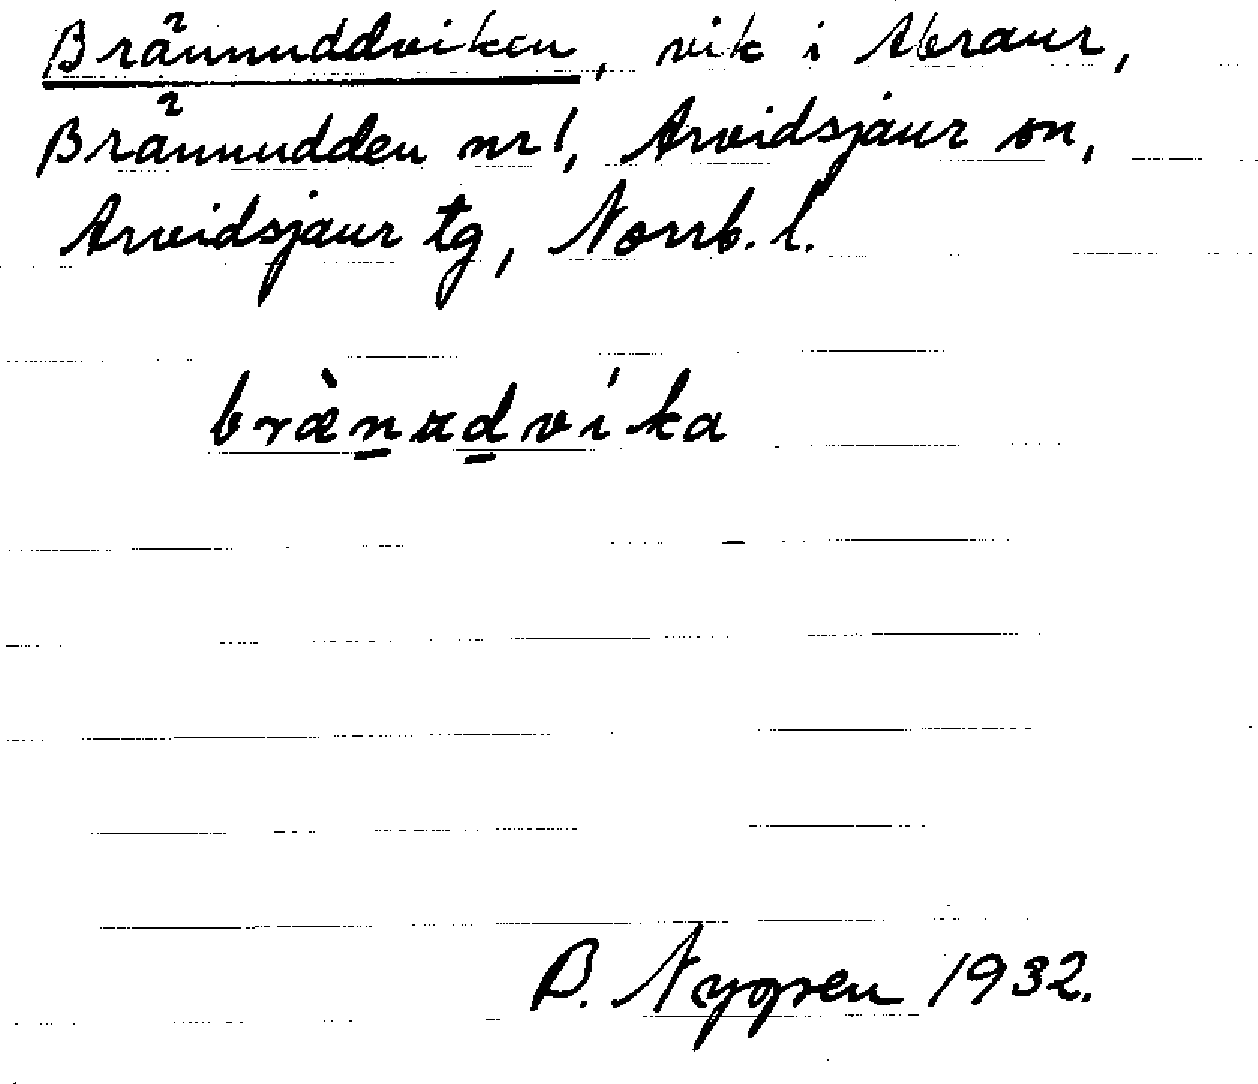 Brännuddviken, vik i Abraur,
Brännudden nr 1, Arvidsjaur sn,
Arvidsjaur tg, Norrb. l.
bræ̀nudvíka
B. Nygren 1932.